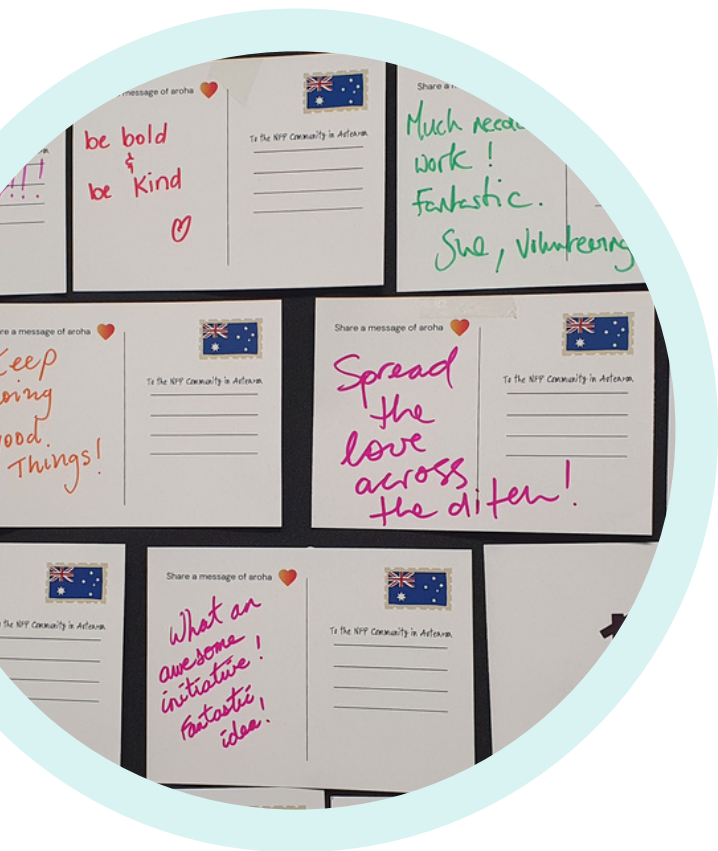 message of aroha
be bold
&
be Kind
To the NFP Community in Aotearoa
Share a
Much
work !
Fantastic.
Sue, Volunteering
re a message of aroha
eep
oing
ood.
Things!
To the NFP Community in Aotearoa
Share a message of aroha
Spread
the
love
across
the ditch!
To the NFP Community in Aotearoa
the NFP Community in Aotearoa
Share a message of aroha
What an
awesome
initiative!
Fantastic
idea!
To the NFP Community in Aotearoa